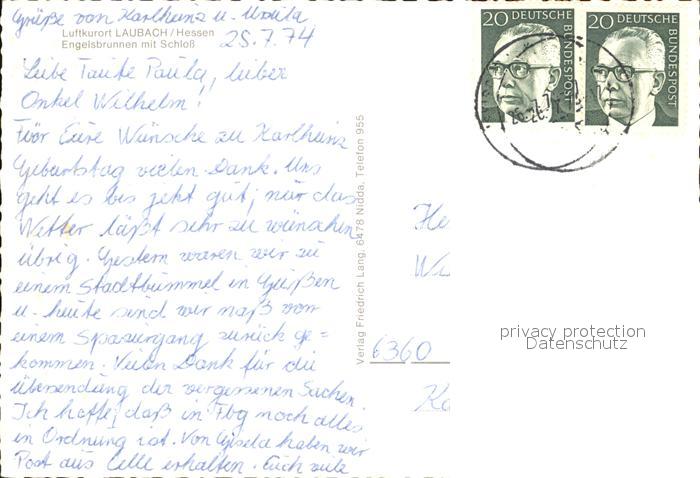 Grüße von Karlheinz u.
Luftkurort LAUBACH / Hessen
Engelsbrunnen mit Schloß
25.7.74
Liebe Tante Paula, lieber
Onkel Wilhelm!
Für Eure Wünsche zu Karlheinz
Geburtstag vielen Dank. Uns
geht es bis jetzt gut, nur das
Wetter läßt sehr zu wünschen
übrig. Gestern waren wir zu
einem Stadtbummel in Gießen
u. heute sind wir naß von
einem Spaziergang zurück ge=
kommen. Vielen Dank für die
Übersendung der vergessenen Sachen.
Ich hoffe, daß in Fbg noch alles
in Ordnung ist. Von Gisela haben wir
Post aus Celle erhalten. Euch viele
Verlag Friedrich Lang, 6478 Nidda, Telefon 955
20 DEUTSCHE BUNDESPOST
20 DEUTSCHE BUNDESPOST
He
Wi
6360
Ka
privacy protection
Datenschutz